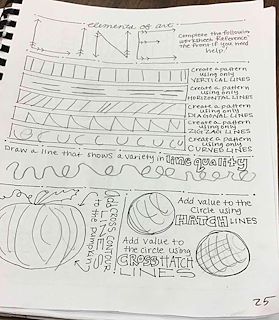 elements of art
Complete the following
worksheet. Reference
the front if you need
help!
Create a pattern
using only
VERTICAL LINES
Create a pattern
using only
HORIZONTAL LINES
Create a pattern
using only
DIAGONAL LINES
Create a pattern
using only
ZIGZAG LINES
Create a pattern
using only
CURVED LINES
Draw a line that shows a variety in line quality
Add CROSS CONTOUR
LINES
to the pumpkin
Add value to the
Circle using
HATCH LINES
Add value to
the circle using
CROSS HATCH
LINES
25